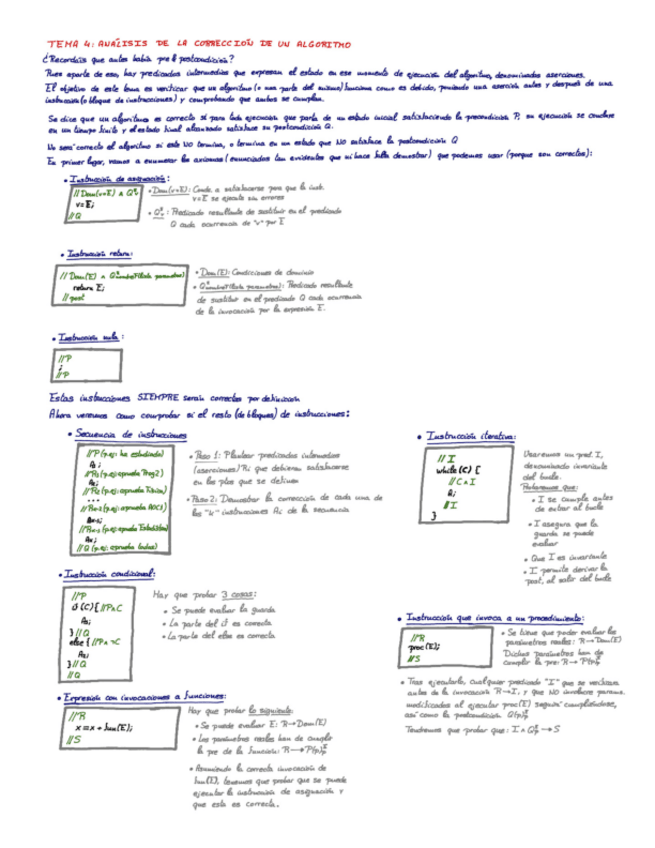 TEMA 4: ANÁLISIS DE LA CORRECCIÓN DE UN ALGORITMO
¿Recordáis que antes había pre y postcondición?
Pues aparte de eso, hay predicados intermedios que expresan el estado en ese momento de ejecución del algoritmo, denominados aserciones.
El objetivo de este tema es verificar que un algoritmo (o una parte del mismo) funciona como es debido, poniendo una aserción antes y después de una
instrucción (o bloque de instrucciones) y comprobando que ambas se cumplan.
Se dice que un algoritmo es correcto si para toda ejecución que parta de un estado inicial satisfaciendo la precondición P, su ejecución se concluye
en un tiempo finito y el estado final alcanzado satisface su postcondición Q.
No será correcto el algoritmo si este NO termina, o termina en un estado que NO satisface la postcondición Q
En primer lugar, vamos a enumerar los axiomas (enunciados tan evidentes que ni hace falta demostrar) que podemos usar (porque son correctos):
• Instrucción de asignación:
// Dom(v=E) ∧ Q
v=E;
// Q
• Dom(v=E): Condic. a satisfacerse para que la inst.
v=E se ejecute sin errores
• Q : Predicado resultante de sustituir en el predicado
Q cada ocurrencia de "v" por E
• Instrucción return:
// Dom(E) ∧ Q
return E;
// post
• Dom(E): Condiciones de dominio
• Q : Predicado resultante
de sustituir en el predicado Q cada ocurrencia
de la invocación por la expresión E.
• Instrucción nula:
// P
;
// P
Estas instrucciones SIEMPRE serán correctas por definición
Ahora veremos como comprobar si el resto (de bloques) de instrucciones:
• Secuencia de instrucciones
// P (p.ej: ha estudiado)
A₁;
// R₁ (p.ej: aprueba Prog2)
A₂;
// R₂ (p.ej: aprueba Física)
...
(p.ej: aprueba AOC1)
(p.ej: aprueba Estadística)
// Q (p.ej: aprueba todas)
• Paso 1: Plantear predicados intermedios
(aserciones) Ri que debieran satisfacerse
en los ptos que se definen
• Paso 2: Demostrar la corrección de cada una de
las "k" instrucciones Ai de la secuencia
• Instrucción iterativa:
// I
while (C) {
// C ∧ I
A;
// I
}
Usaremos un pred. I,
denominado invariante
del bucle.
que:
• I se cumple antes
de entrar al bucle
• I asegura que la
guarda se puede
evaluar
• Que I es invariante
• I permite derivar la
post, al salir del bucle
• Instrucción condicional:
// P
if (C) { // P ∧ C
A₁;
} // Q
else { // P ∧ ¬C
A₂;
} // Q
// Q
Hay que probar 3 cosas:
• Se puede evaluar la guarda
• La parte del if es correcta
• La parte del else es correcta
• Instrucción que invoca a un procedimiento:
// R
proc (E);
// S
• Se tiene que poder evaluar los
parámetros reales: R → Dom(E)
Dichos parámetros han de
cumplir la pre: R → P
• Tras ejecutarlo, cualquier predicado "I" que se verificara
antes de la invocación R → I, y que NO involucre params.
modificados al ejecutar proc(E) seguirá cumpliéndose,
así como la postcondición Q
Tendremos que probar que: I ∧ Q → S
• Expresión con invocaciones a funciones:
// R
x = x + fun(E);
// S
Hay que probar lo siguiente:
• Se puede evaluar E: R → Dom(E)
• Los parámetros reales han de cumplir
la pre de la función: R → P
• Asumiendo la correcta invocación de
fun(E), tenemos que probar que se puede
ejecutar la instrucción de asignación y
que esta es correcta.